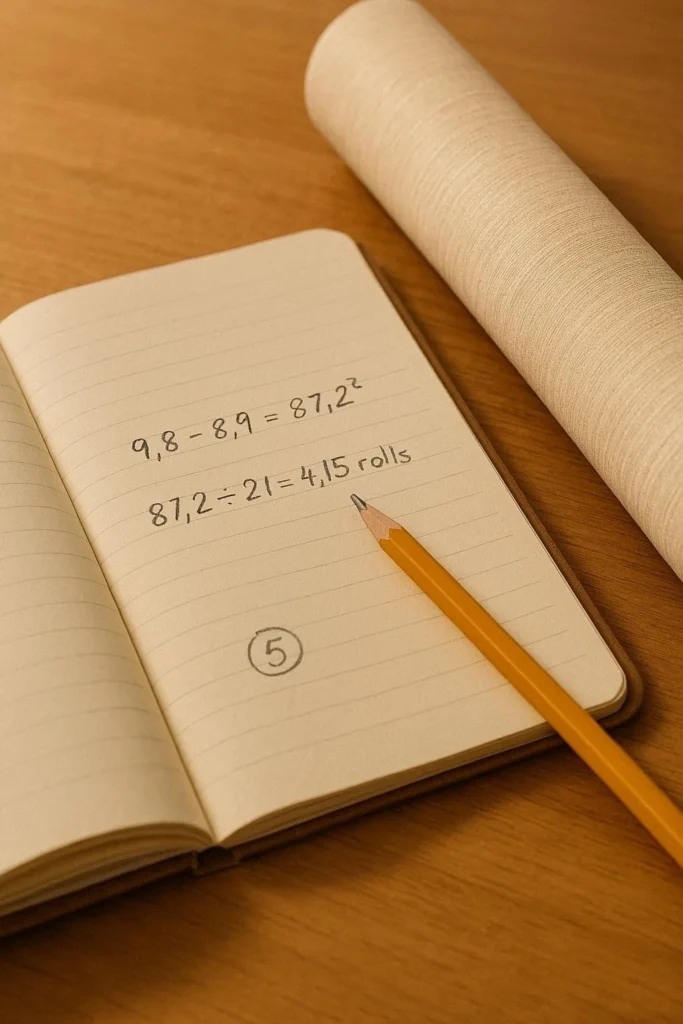 9,8 - 8,9 = 87,2²
87,2 ÷ 21 = 4,15 rolls
5